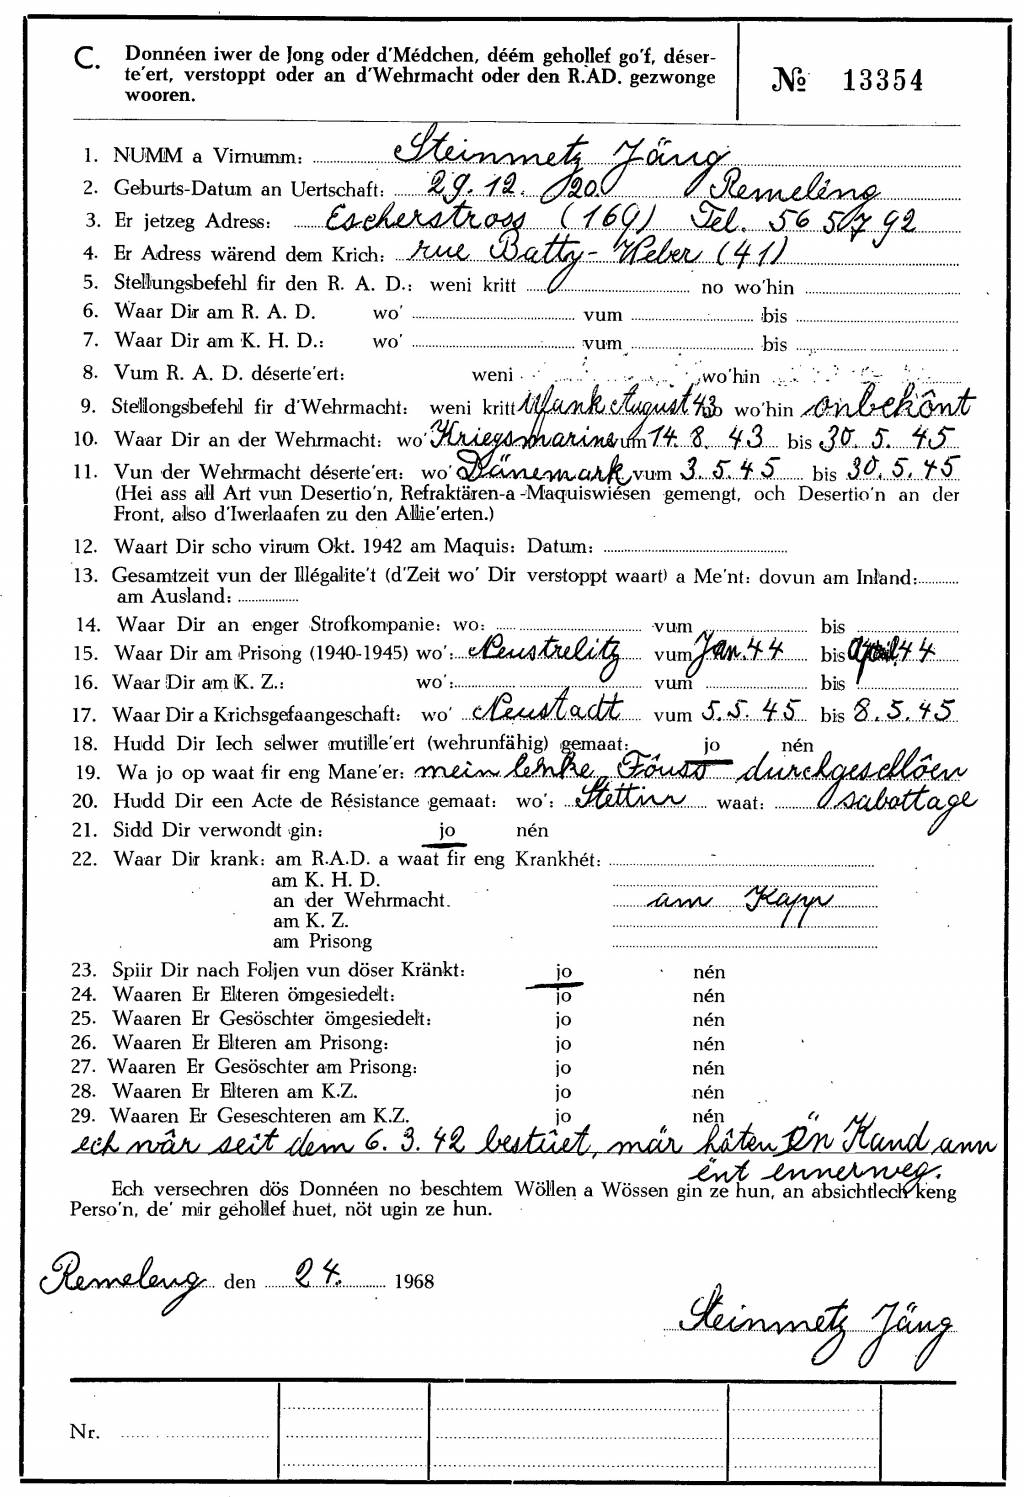 C. Donnéen iwer de Jong oder d'Médchen, déém gehollef go'f, déser-
te'ert, verstoppt oder an d'Wehrmacht oder den R.AD. gezwonge
wooren.
№ 13354
1. NUMM a Virnumm: Steinmetz Jäng
2. Geburts-Datum an Uertschaft: 29. 12. 20. Remeléng
3. Er jetzeg Adress: Escherstross (169) Tel. 56 57 92
4. Er Adress wärend dem Krich: rue Batty-Weber (41)
5. Stellungsbefehl fir den R. A. D.: weni kritt no wo'hin
6. Waar Dir am R. A. D. wo' vum bis
7. Waar Dir am K. H. D.: wo' vum bis
8. Vum R. A. D. déserte'ert: weni wo'hin
9. Stellongsbefehl fir d'Wehrmacht: weni kritt Ufank August 43 no wo'hin onbekônt
10. Waar Dir an der Wehrmacht: wo' Kriegsmarine vum 14. 8. 43 bis 30. 5. 45
11. Vun der Wehrmacht déserte'ert: wo' Dänemark vum 3. 5. 45 bis 30. 5. 45
(Hei ass all Art vun Desertio'n, Refraktären-a -Maquiswiésen gemengt, och Desertio'n an der
Front, also d'Iwerlaafen zu den Allie'erten.)
12. Waart Dir scho virum Okt. 1942 am Maquis: Datum:
13. Gesamtzeit vun der Illégalite't (d'Zeit wo' Dir verstoppt waart) a Me'nt: dovun am Inland:
am Ausland:
14. Waar Dir an enger Strofkompanie: wo: vum bis
15. Waar Dir am Prisong (1940-1945) wo': Neustrelitz vum Jan. 44 bis April 44
16. Waar Dir am K. Z.: wo': vum bis
17. Waar Dir a Krichsgefaangeschaft: wo' Neustadt vum 5. 5. 45 bis 8. 5. 45
18. Hudd Dir Iech selwer mutille'ert (wehrunfähig) gemaat: jo nén
19. Wa jo op waat fir eng Mane'er: mein lenke Fóuss durchgeschlôen
20. Hudd Dir een Acte de Résistance gemaat: wo': Stettin waat: sabottage
21. Sidd Dir verwondt gin: jo nén
22. Waar Dir krank: am R.A.D. a waat fir eng Krankhét:
am K. H. D.
an der Wehrmacht. am Kapp
am K. Z.
am Prisong
23. Spiir Dir nach Foljen vun döser Kränkt: jo nén
24. Waaren Er Elteren ömgesiedelt: jo nén
25. Waaren Er Gesöschter ömgesiedelt: jo nén
26. Waaren Er Elteren am Prisong: jo nén
27. Waaren Er Gesöschter am Prisong: jo nén
28. Waaren Er Elteren am K.Z. jo nén
29. Waaren Er Geseschteren am K.Z. jo nén
ech wâr seit dem 6. 3. 42 bestûet, mär hâten ën Kand ann
ënt ennerweg.
Ech versechren dös Donnéen no beschtem Wöllen a Wössen gin ze hun, an absichtlech keng
Perso'n, de' mir gehollef huet, nöt ugin ze hun.
Remeleng den 24. 1968
Steinmetz Jäng
Nr.